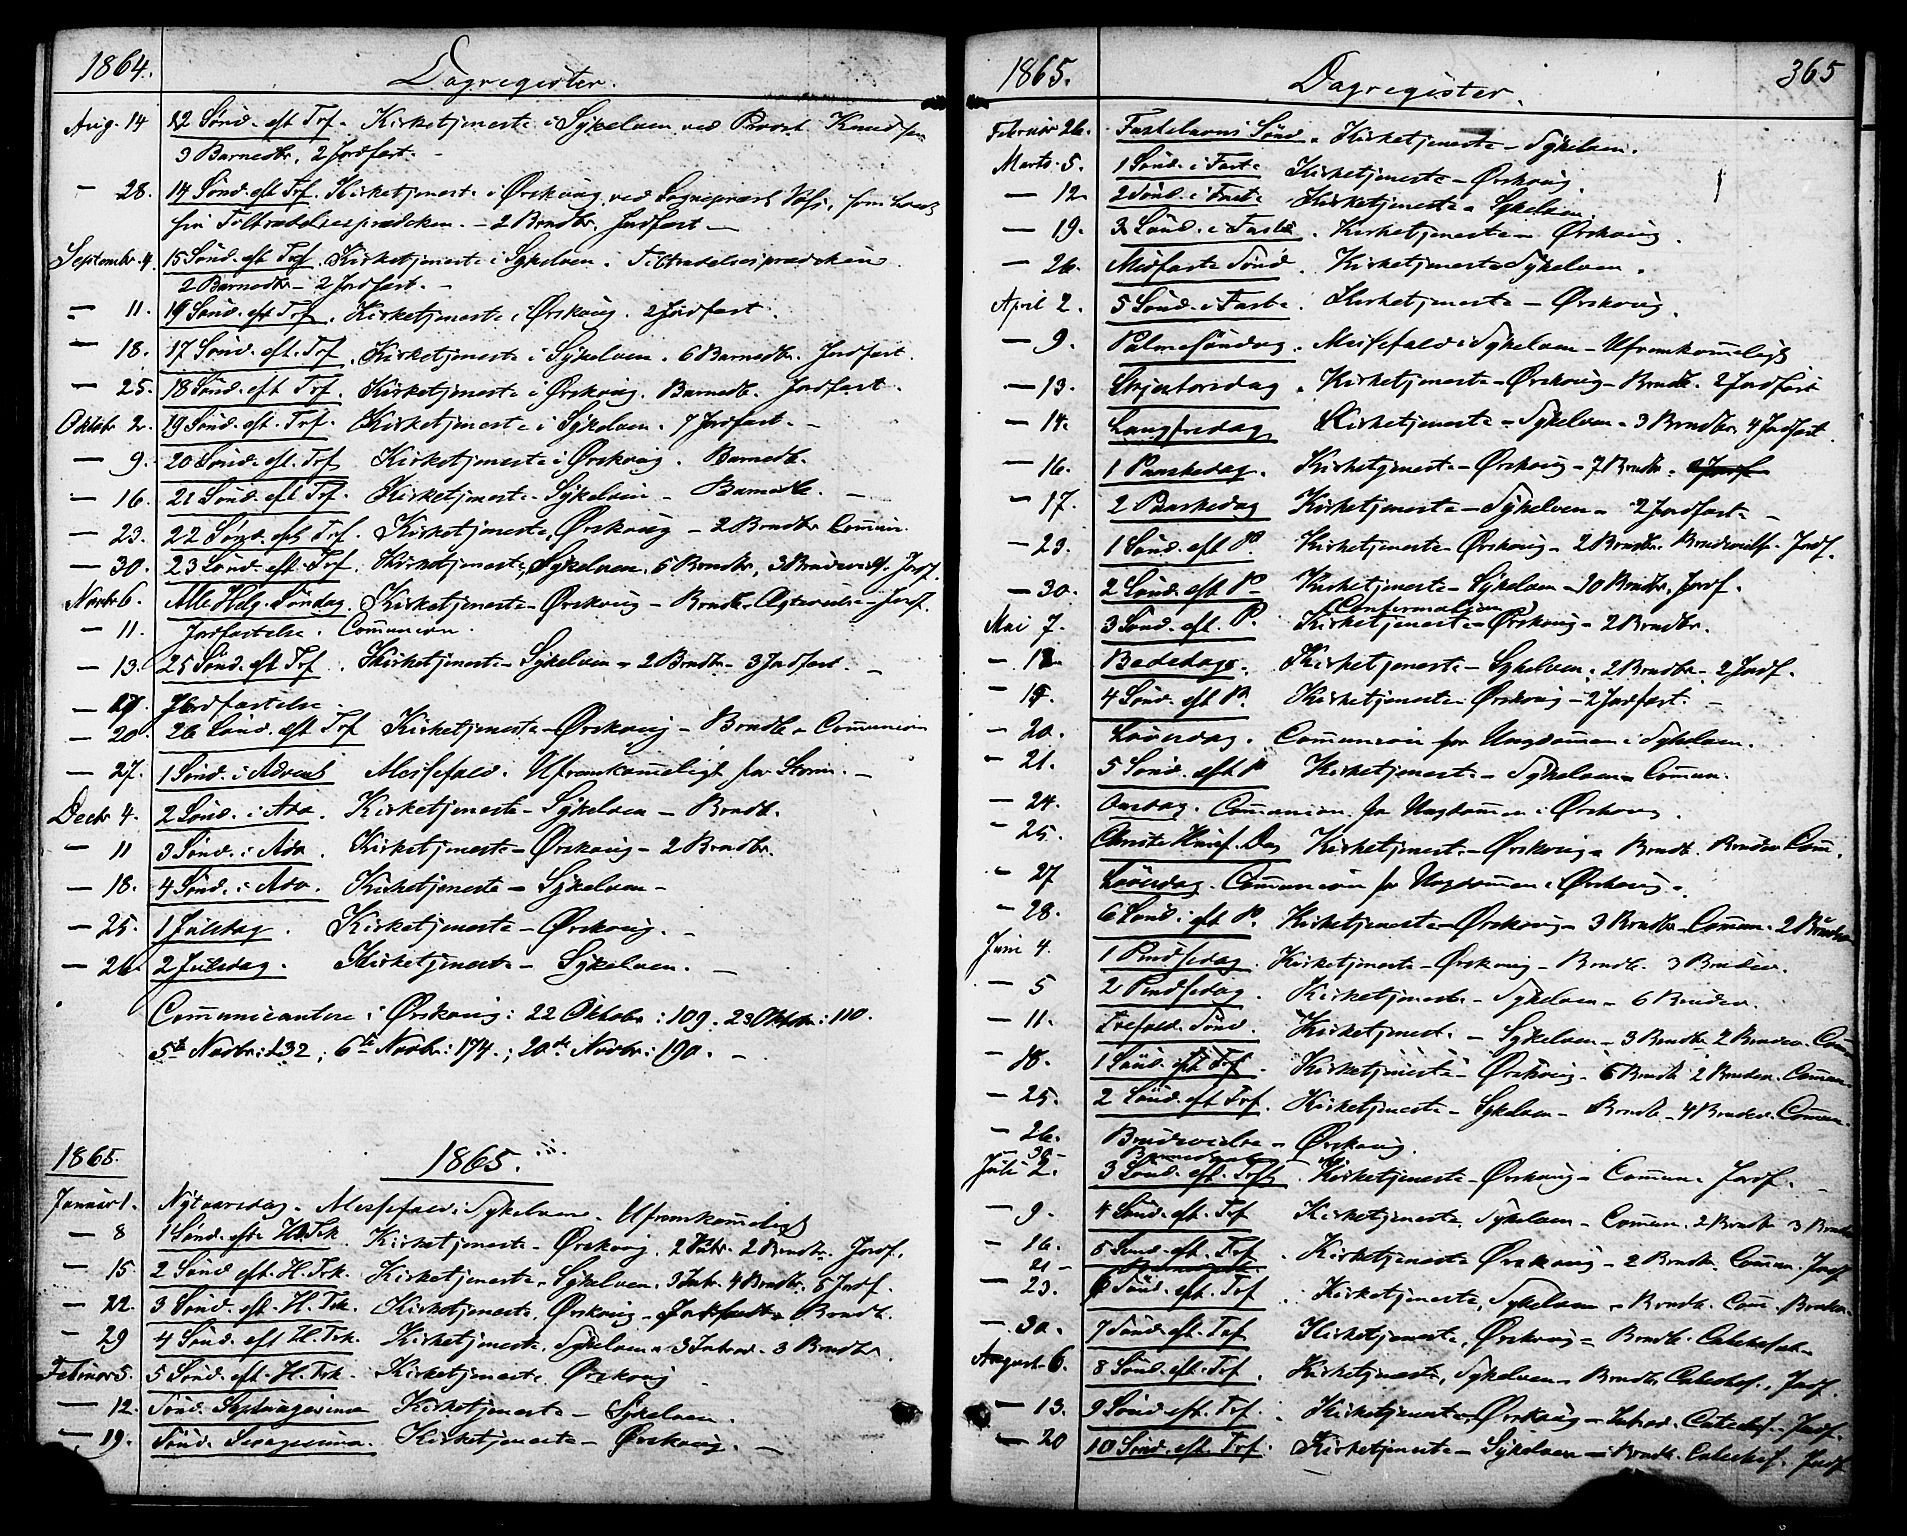 1864.
Dagregister.
Aug. 14 12 Sönd. eft Trf. Kirketjeneste i Sykelven ved Provst Knudsen
3 Barnedbr, 2 Jordfast. -
— 28. 14 Sönd. eft Trf. Kirketjeneste i Ørskoug ved Sognepræst som
sin Tiltrædelsesprædiken. - 2 Brndbr. Jordfast —
Septembr. 4. 15 Sönd. eft Trf. Kirketjeneste i Sykelven. Tiltrædelsesprædiken
2 Barnedbr - 2 Jordfast. -
— 11. 19 Sönd. eft Trf. Kirketjeneste i Ørskoug. 2 Jordfast.
— 18. 17 Sönd. eft. Trf. Kirketjeneste i Sykelven. 6 Barnedbr. Jordfast.
— 25. 18 Sönd. eft Trf. Kirketjeneste i Ørskoug. Barnedb. Jordfast.
Oktobr 2. 19 Sönd. eft. Trf. Kirketjeneste i Sykelven. 7 Jordfast. -
— 9. 20 Sönd. eft. Trf Kirketjeneste i Ørskoug. Barnedb.
— 16. 21 Sönd. eft Trf. Kirketjeneste - Sykelven - Barnedb. —
— 23. 22 Sönd. eft Trf. Kirketjeneste, Ørskoug - 2 Brndbr Comun.
— 30. 23 Sönd. eft. Trf. Kirketjeneste, Sykelven. 5 Brndbr, 3 Brudevielf. Jordf.
Novbr 6. Alle Helg. Söndag. Kirketjeneste - Ørskoug - Brndb. Ægtevielse - Jordf.
— 11. Jordfæstelse. Comunion.
— 13. 25 Sönd. eft Trf. Kirketjeneste - Sykelven - 2 Brndbr - 3 Jordfast. —
— 17. Jordfæstelse -
— 20 26 Sönd. eft Trf Kirketjeneste - Ørskoug - Brndb. Comunion
— 27. 1 Sönd. i Advent Messefald. Ufremkomeligt for Storm. —
Decbr 4. 2 Sönd. i Adv. Kirketjeneste - Sykelven - Brndb.
— 11 3 Sönd. i Adv. Kirketjeneste - Ørskoug - 2 Brndbr.
— 18. 4 Sönd. i Adv. Kirketjeneste - Sykelven -
— 25. 1 Juledag. Kirketjeneste - Ørskoug. -
— 26. 2 Juledag. Kirketjeneste - Sykelven. —
Communicantere i Ørskoug: 22 Oktobr: 109. 23 Oktobr: 110.
5te Novbr: 132; 6te Novbr: 174.; 20de Novbr: 190. -
1865. 1865.
Januar 1. Nytaarsdag. Messefald i Sykelven. Ufremkomeligt
— 8 1 Sönd. efte H.Trk. Kirketjeneste - Ørskoug. 2 Intr. 2 Brndbr. Jordf.
— 15 2 Sönd eft. H. Trk. Kirketjeneste, Sykelven. 3 Intr. 4 Brndbr. 5 Jordf.
— 22. 3 Sönd. eft. H. Trk. Kirketjeneste, Ørskoug - Brndb.
— 29 4 Sönd. eft H. Trk. Kirketjeneste, Sykelven - 3 Introd - 3 Brndbr.
Februar 5. 5 Sönd. eft. H. Trk. Kirketjeneste Ørskoug
— 12. Sönd. Septuagesima Kirketjeneste - Sykelven.
— 19. Sönd. Sexagesima. Kirketjeneste - Ørskoug. —
1865. 365
Dagregister.
Februar 26. Fastelavns Sönd. Kirketjeneste - Sykelven.
Marts 5. 1 Sönd. i Faste Kirketjeneste - Ørskoug.
— 12 2 Sönd. i Faste Kirketjeneste - Sykelven.
— 19. 3 Sönd. i Faste. Kirketjeneste - Ørskoug.
— 26. Midfaste Sönd. Kirketjeneste Sykelven.
April 2. 5 Sönd. i Faste. Kirketjeneste - Ørskoug.
— 9. Palmesöndag. Messefald i Sykelven - Ufremkomeligt
— 13. Skjertorsdag. Kirketjeneste - Ørskoug - Brndb. 2 Jordfast
— 14. Langfredag Kirketjeneste - Sykelven - 3 Brndbr 4 Jordfast.
— 16. 1 Paaskedag. Kirketjeneste - Ørskoug - 7 Brndbr.
— 17. 2 Paaskedag Kirketjeneste - Sykelven - 2 Jordfast —
— 23. 1 Sönd. eft P. Kirketjeneste - Ørskoug - 2 Brndbr. Brudevielf. Jordf.
— 30. 2 Sönd. eft P - Kirketjeneste - Sykelven - 10 Brndbr, Jordf.
(Confirmation)
Mai 7. 3 Sönd. eft. P. Kirketjeneste - Ørskoug - 2 Brndbr.
— 12 Bededag. Kirketjeneste - Sykelven. 2 Brndbr - 2 Jordf.
— 4 Sönd. eft P. Kirketjeneste - Ørskoug - 2 Jordfast. -
— 20. Löverdag. Comunion for Ungdomen i Sykelven.
— 21. 5 Sönd. eft P Kirketjeneste - Sykelven - Comun.
— 24. Onsdag. Comunion for Ungdomen i Ørskoug.
— 25. Christi Himf. Dag Kirketjeneste - Ørskoug - Brndb. Brudev. Com.
— 27 Löverdag. Comunion for Ungdomen i Ørskoug.
— 28. 6 Sönd. eft P. Kirketjeneste - Ørskoug - 3 Brndbr - Comun. 2 Brudev
Juni 4. 1 Pindsedag. Kirketjeneste - Ørskoug - Brndb. 3 Brudev.
— 5 2 Pindsedag. Kirketjeneste - Sykelven - 6 Brudev.
— 11. Trefold. Sönd. Kirketjenest. - Sykelven - 3 Brndbr 2 Brudev. Com
— 18. 1 Sönd. eft Trf. Kirketjeneste - Ørskoug - 5 Brndb 2 Brudev. Comun.
— 25. 2 Sönd. eft Trf. Kirketjeneste - Sykelven - Brndb - 4 Brudev. Comun.
— 26. Brudevielse - Ørskoug.
— 30 -
Juli 2. 3 Sönd. eft. Trf. Kirketjeneste - Ørskoug - Comun. Jordf. —
— 9. 4 Sönd. eft. Trf Kirketjeneste, Sykelven - Comun. 2 Brndbr 3 Brudev
— 16. 5 Sönd. eft. Trf. Kirketjeneste Ørskoug - 2 Brndbr. Comun. Jordf
21 -
— 23. 6 Sönd. eft. Trf. Kirketjeneste, Sykelven - Brndb. Com. Brudev.
— 30. 7 Sönd. eft. Trf Kirketjeneste, Ørskoug - Brndb.
August 6. 8 Sönd. eft. Trf. Kirketjeneste, Sykelven - Brndbr Catechef., Jordf.
— 13. 9 Sönd. eft. Trf. Kirketjeneste - Ørskoug - Introd. Catechef. Jordf.
— 20 10 Sönd. eft. Trf. Kirketjeneste - Sykelven - Brndb. Catechef. Jordf